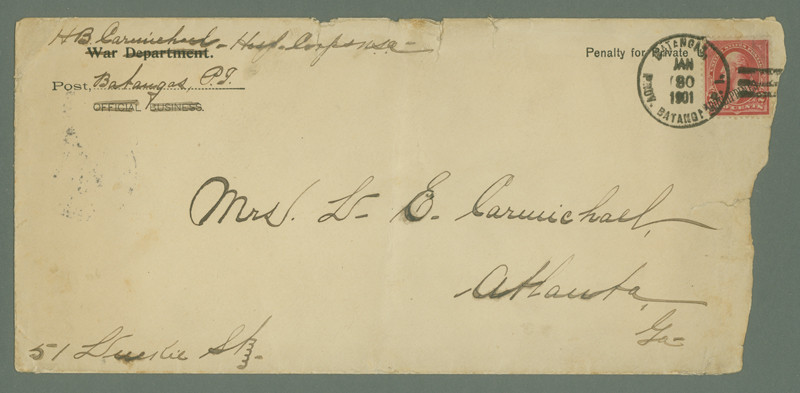 H B Carmichael - Hosp. Corps USA -
War Department.
Penalty for Private
Post, Batangas, P.I.
OFFICIAL BUSINESS.
BATANGAS,
JAN
30
1901
PROV. BATANGAS, P.I.
CENTS
Mrs. L- E- Carmichael,
Atlanta,
Ga-
51 Luckie St-